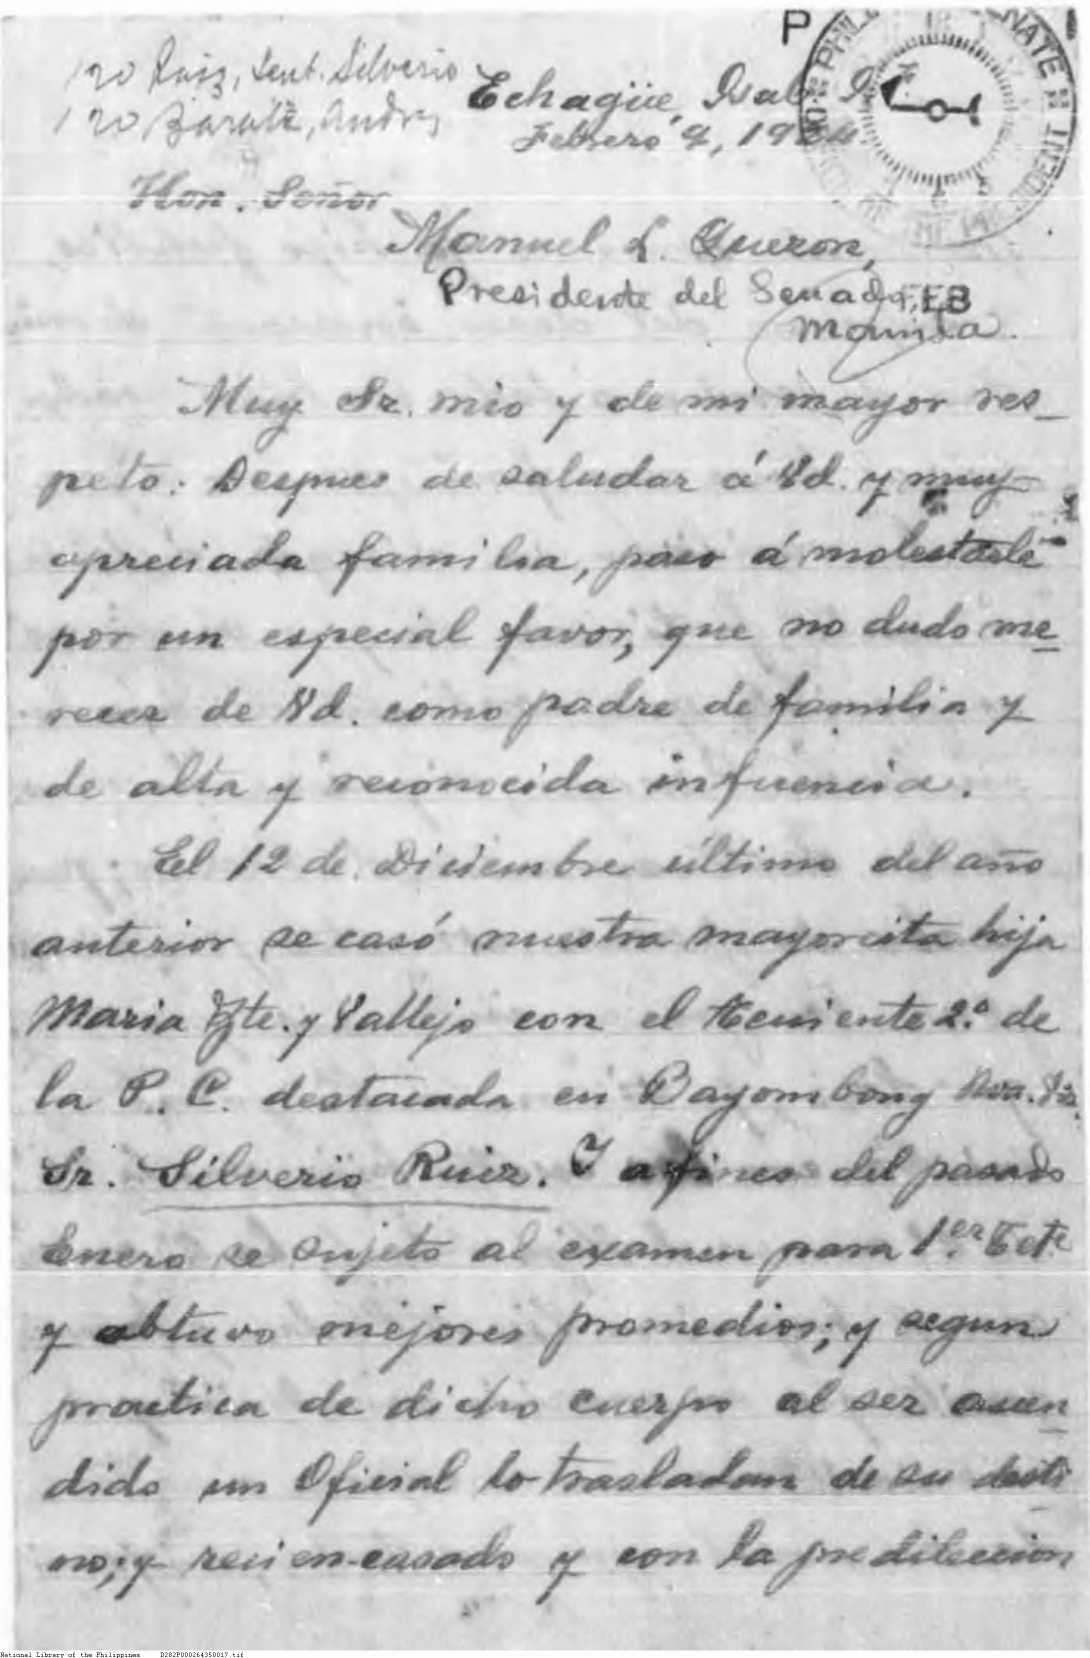 120 Ruiz, Lieut. Silverio
120 Zarate, Andres
P
Echagüe, Isab
Febrero 4, 19
Hon. Señor
Manuel L. Quezon,
Presidente del Senado,
FEB
Manila.
Muy Sr. mio y de mi mayor res_
peto: Despues de saludar á Vd. y muy
apreciada familia, paso á molestarle
por un especial favor, que no dudo me
recer de Vd. como padre de familia y
de alta y reconocida infuencia.
El 12 de Diciembre último del año
anterior se casó nuestra mayorcita hija
Maria y Vallejo con el Teniente 2.º de
la P. C. destacada en Bayombong Nva. Viz.
Sr. Silverio Ruiz. Y a fines del pasado
Enero se sujeto al examen para 1.er
y obtuvo mejores promedios; y segun
practica de dicho cuerpo al ser ascen
dido un Oficial lo trasladan de su desti
no; y recien-casado y con la predileccion
National Library of the Philippines D282P000264350017.tif